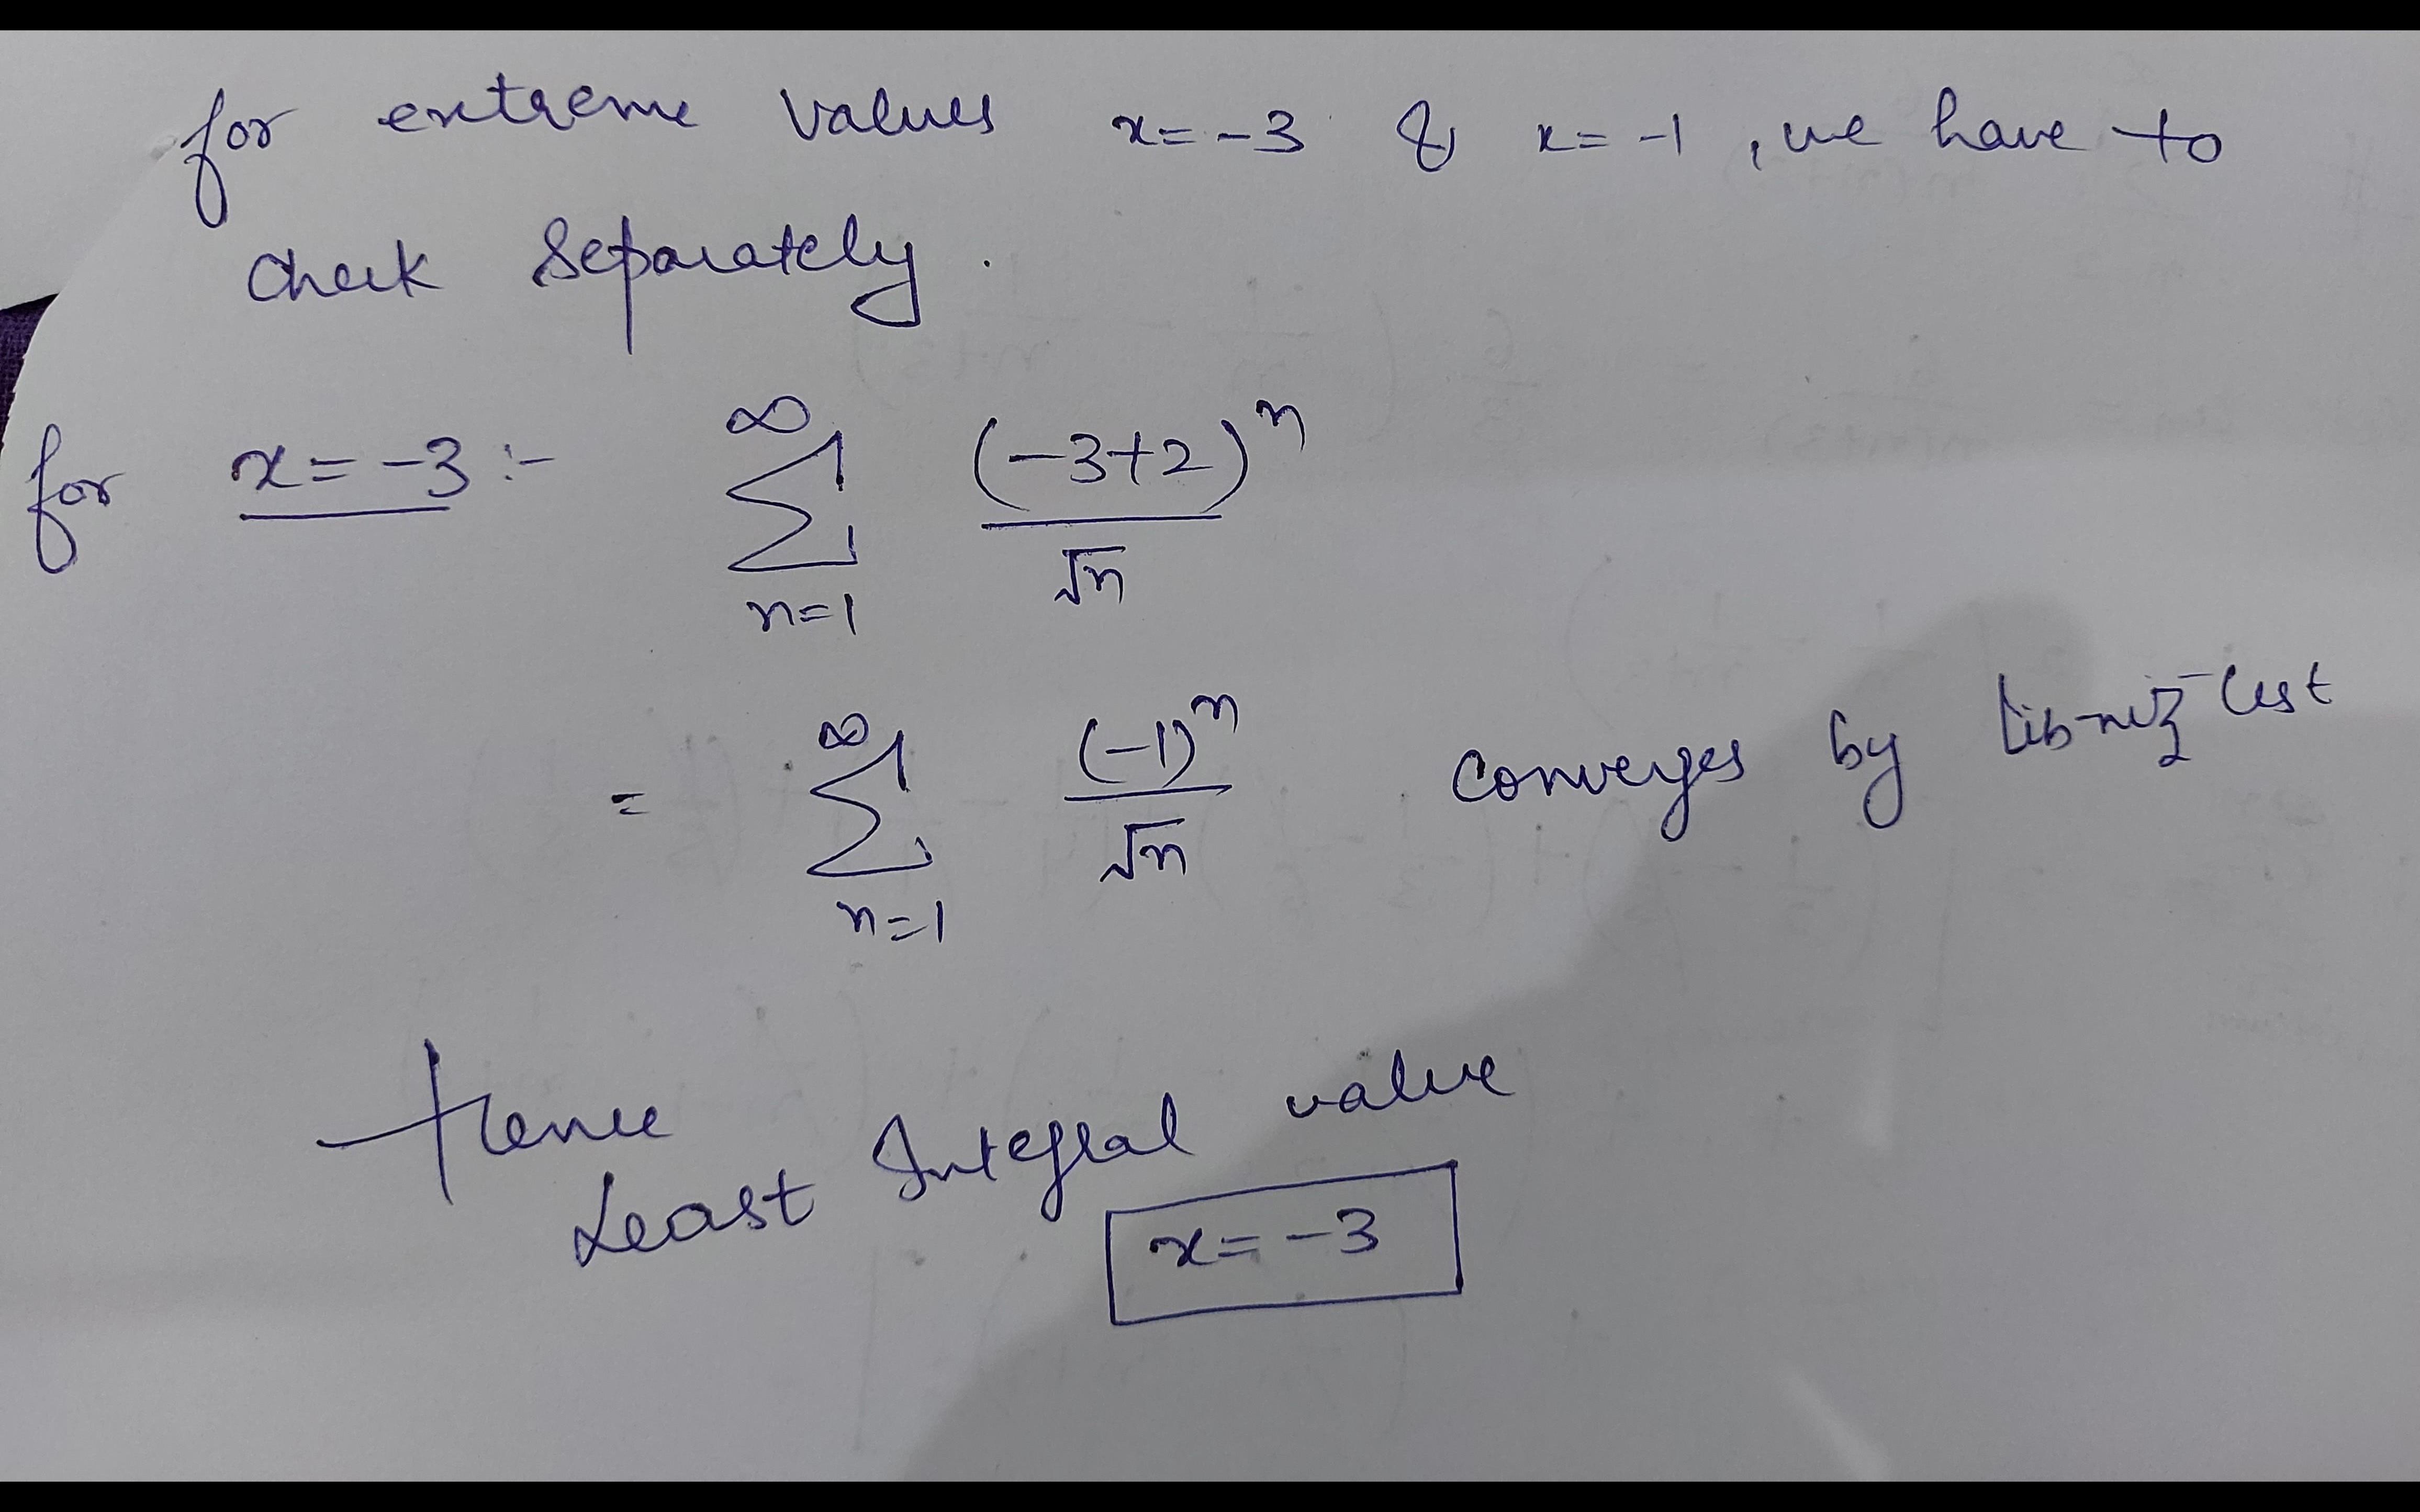 for extreme values x = -3 & x = -1, we have to
check separately.
for x = -3 :- ∞∑n=1 (-3+2)^n / √n
= ∞∑n=1 (-1)^n / √n converges by Libniz test
Hence
Least Integral value
x = -3